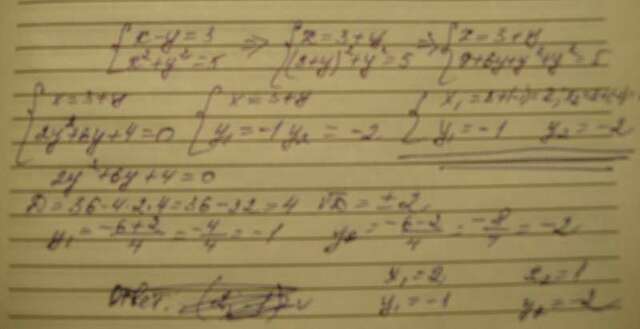 {x-y=3 {x²+y²=5 => {x=3+y {(3+y)²+y²=5 => {x=3+y {9+6y+y²+y²=5
{x=3+y {2y²+6y+4=0 {x=3+y {y₁=-1 y₂=-2 {x₁=3+(-1)=2, {y₁=-1 y₂=-2
2y²+6y+4=0
D=36-4·2·4=36-32=4 √D=±2
y₁=(-6+2)/4=-4/4=-1 y₂=(-6-2)/4=-8/4=-2
x₁=2 x₂=1
Ответ: y₁=-1 y₂=-2